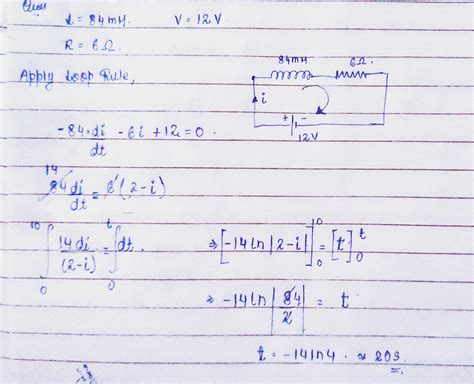 Given
L = 84mH. V = 12V.
R = 6Ω.
Apply Loop Rule,
84mH 6Ω
i
+ -
12V
-84 di/dt - 6i + 12 = 0.
14
84 di/dt = 6 (2-i)
∫₀¹⁰ 14di/(2-i) = ∫₀ᵗ dt.
⇒ [-14 ln |2-i|]₀¹⁰ = [t]₀ᵗ
⇒ -14 ln |84/2| = t
t = -14 ln 4 . ≈ 20s.